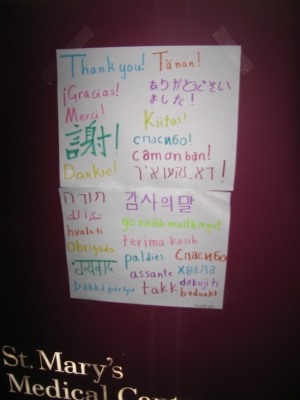 Thank you! Tänan!
¡Gracias! ありがとうござい
ました!
Merci! Kiitos!
謝! спасибо!
cảm ơn bạn!
Dankie!
תודה 감사의 말
go raibh maith agat
hvala ti terima kasih
Obrigado paldies Спасибо
धन्यवाद assante хвала
takk dakuji ti
bedankt
St. Mary's
Medical Cent